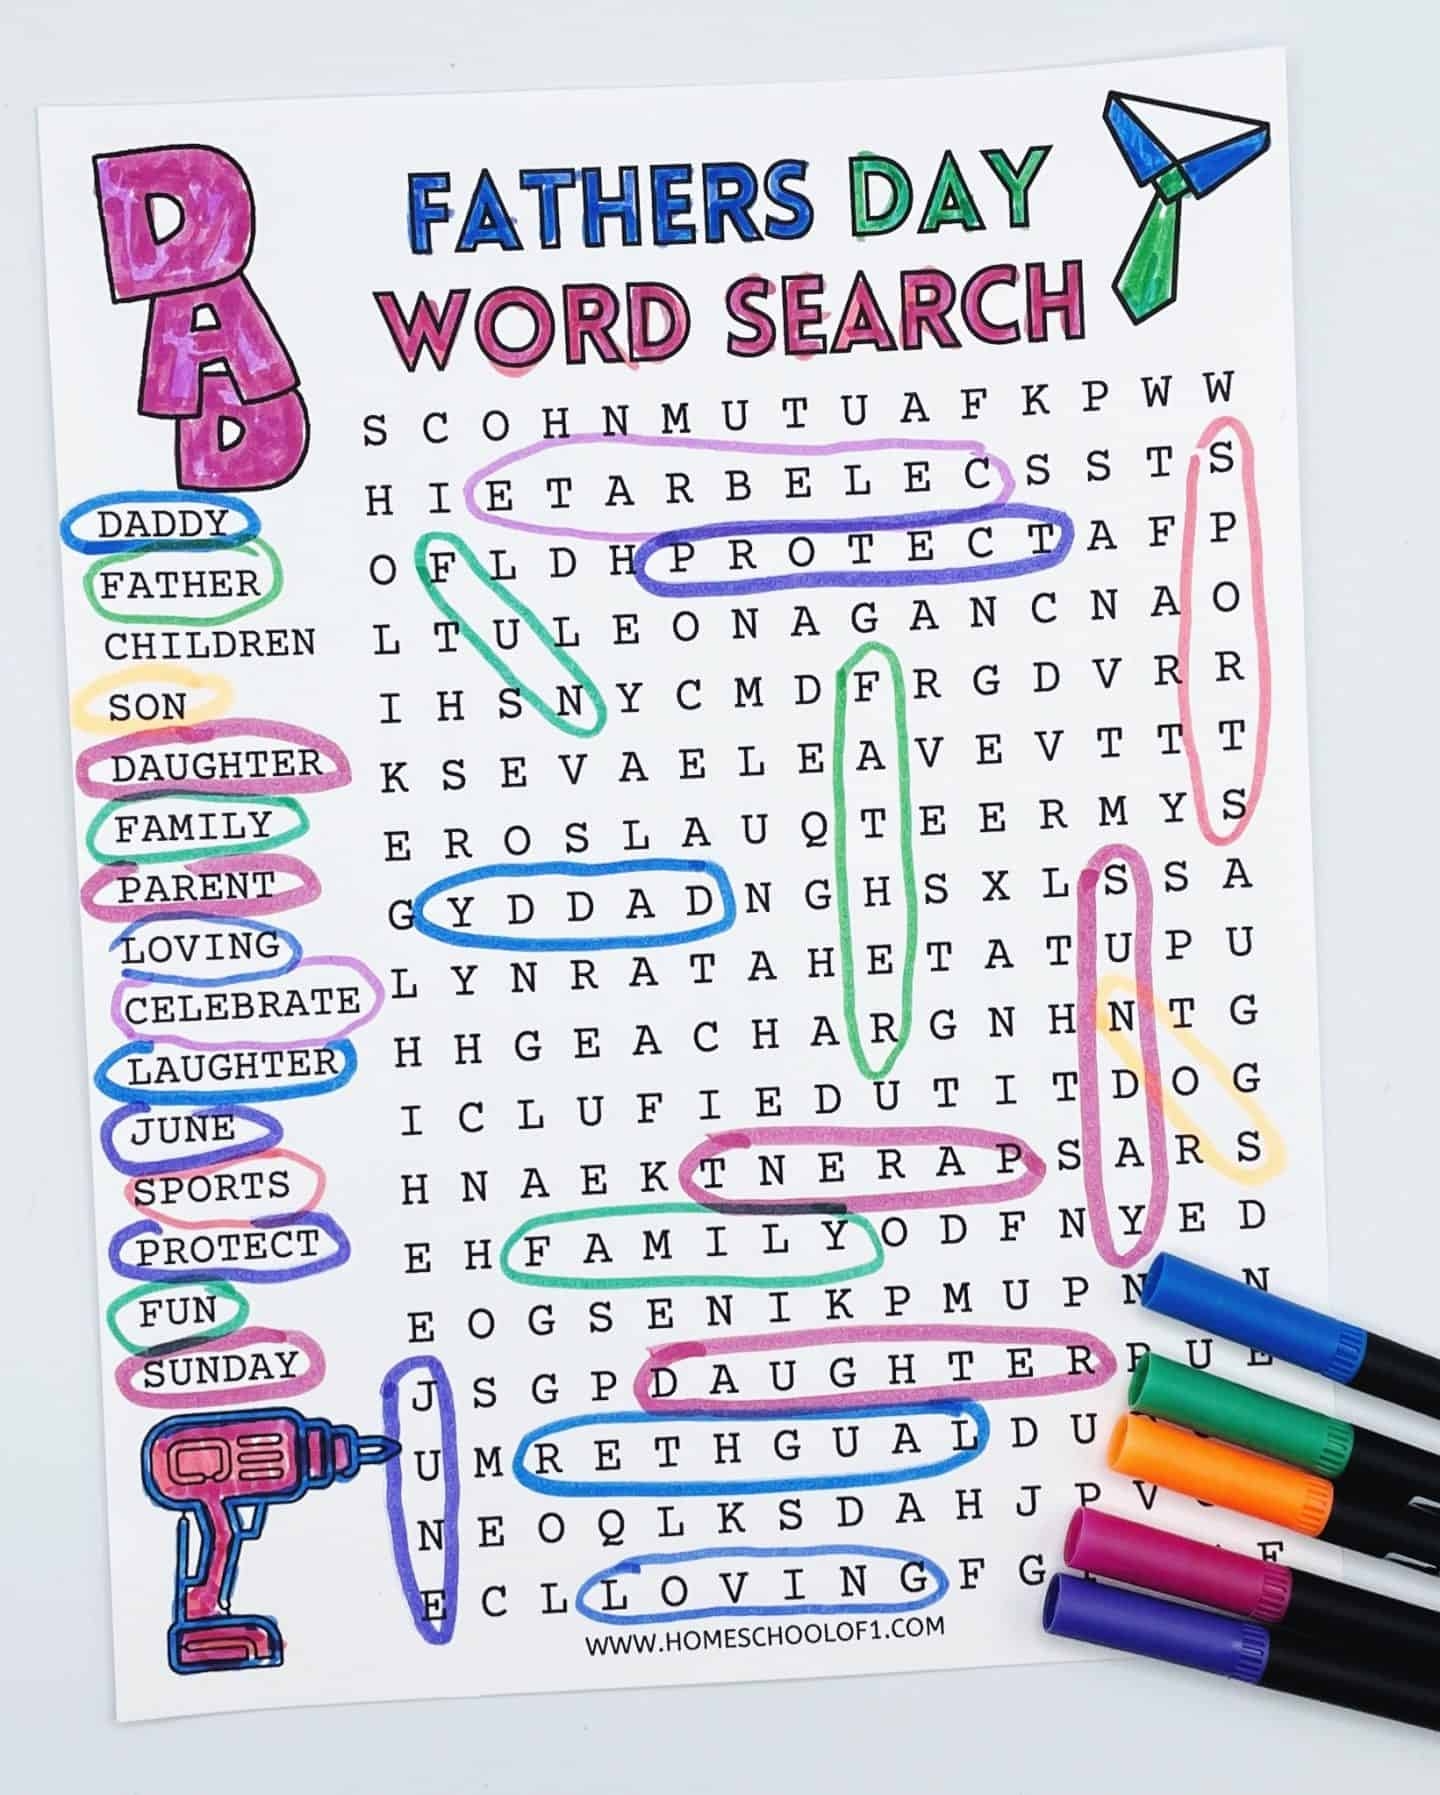 DAD
FATHERS DAY
WORD SEARCH
DADDY
FATHER
CHILDREN
SON
DAUGHTER
FAMILY
PARENT
LOVING
CELEBRATE
LAUGHTER
JUNE
SPORTS
PROTECT
FUN
SUNDAY
S C O H N M U T U A F K P W W
H I E T A R B E L E C S S T S
O F L D H P R O T E C T A F P
L T U L E O N A G A N C N A O
I H S N Y C M D F R G D V R R
K S E V A E L E A V E V T T T
E R O S L A U Q T E E R M Y S
G Y D D A D N G H S X L S S A
L Y N R A T A H E T A T U P U
H H G E A C H A R G N H N T G
I C L U F I E D U T I T D O G
H N A E K T N E R A P S A R S
E H F A M I L Y O D F N Y E D
E O G S E N I K P M U P N N
J S G P D A U G H T E R P U E
U M R E T H G U A L D U
N E O Q L K S D A H J P V
E C L L O V I N G F G F
WWW.HOMESCHOOLOF1.COM